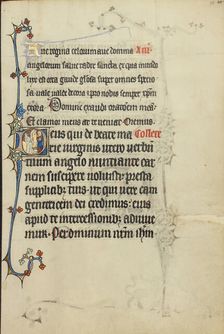 Aue regina celorum aue domina An
angelorum salue radix sancta ex qua mundo
lux est orta gaude glosa super omnes speciosa
uale ualde decora et pro nobis semper xpm
exora Domine exaudi orationem meã
Et clamor meus ad te ueniat Oremus
Deus qui de beate ma Collecte
rie uirginis utero uerbũ
tuum angelo nunciante car
nem suscipere uoluisti presta
supplicib; tuis ut qui uere eam
genitricem dei credimus eius
apud te intercessionib; adiuue
mur Per dominum nrm ihm